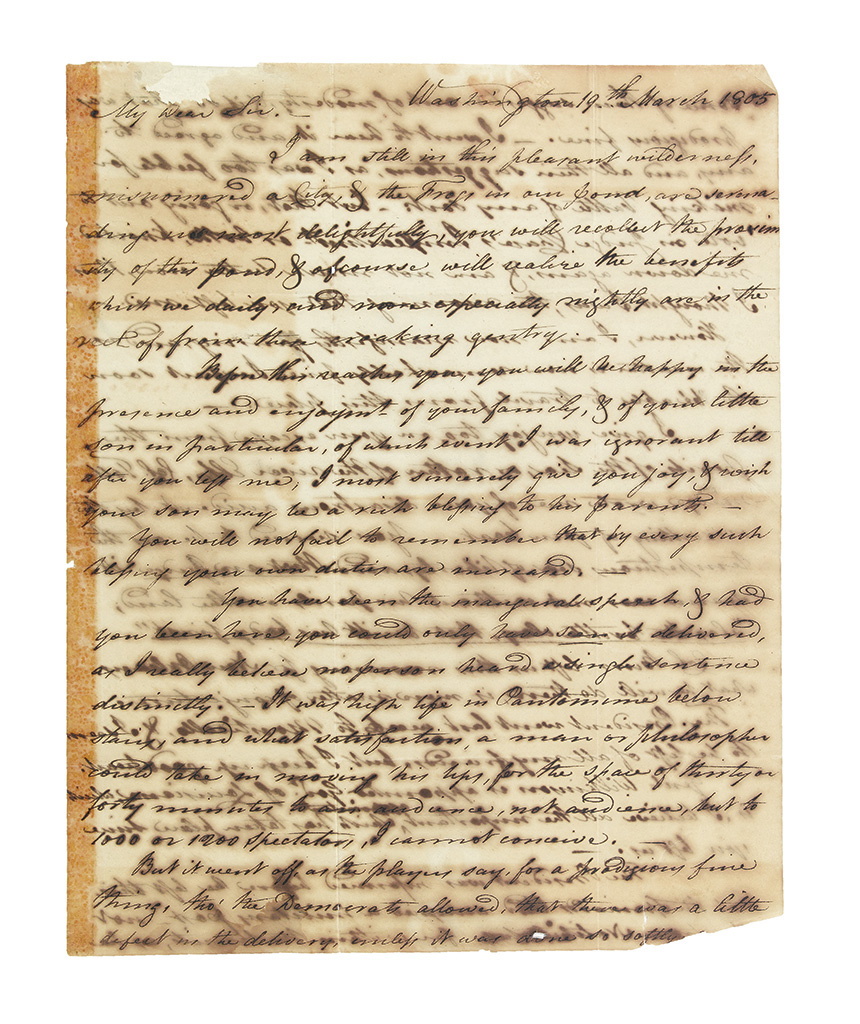 Washington 19th March 1805
My Dear Sir. —
I am still in this pleasant wilderness,
misnomered a City, & the Frogs in our pond, are serena-
ding us most delightfully, you will recollect the proxim
ity of this pond, & of course will realize the benefits
which we daily, and more especially nightly are in the
of from these croaking gentry. —
Before this reaches you, you will be happy in the
presence and enjoymt. of your family, & of your little
son in particular, of which event I was ignorant till
after you left me, I most sincerely give you joy, & wish
your son may be a rich blessing to his parents. —
You will not fail to remember that by every such
blessing your own duties are increased. —
You have seen the inaugural speech, & had
you been here, you could only have seen it delivered,
as I really believe no person heard a single sentence
distinctly. — It was high life in Pantomime below
stairs, and what satisfaction, a man or philosopher
could take in moving his lips, for the space of thirty or
forty minutes to an audience, not audience, but to
1000 or 1200 spectators, I cannot conceive. —
But it went off, as the players say, for a prodigious fine
thing, tho' the Democrats allowed, that there was a little
defect in the delivery, unless it was done so softly